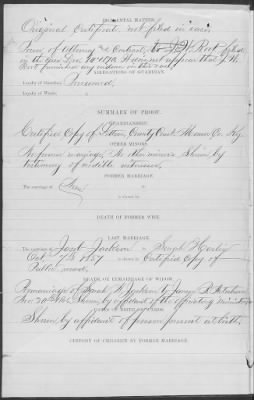 INCIDENTAL MATTER.
Original Certificate not filed in case.
of Attorney and Contract, to J. H. Root filed
in this case Dec 1870. It does not appear that J. H.
Root furnished any evidence in this case.
ALLEGATIONS OF GUARDIAN.
Loyalty of Guardian,
Loyalty of Widow,
SUMMARY OF PROOF.
GUARDIANSHIP.
Certified Copy of County Court Co. Ky.
OTHER MINORS.
No former marriage; No other minors Shown by
testimony of credible witnesses.
FORMER MARRIAGE.
The marriage of
is shown by
DEATH OF FORMER WIFE.
LAST MARRIAGE.
The marriage of Jackson to Sarah
Oct 1857 is shown by Certified Copy of
Public record.
DEATH OR REMARRIAGE OF WIDOW.
Remarriage of Sarah Jackson to James
Nov. 20th Shown by affidavit of the officiating minister
DATES OF BIRTH OF CHILDREN.
Shown by affidavit of person present at birth.
CUSTODY OF CHILDREN BY FORMER MARRIAGE.